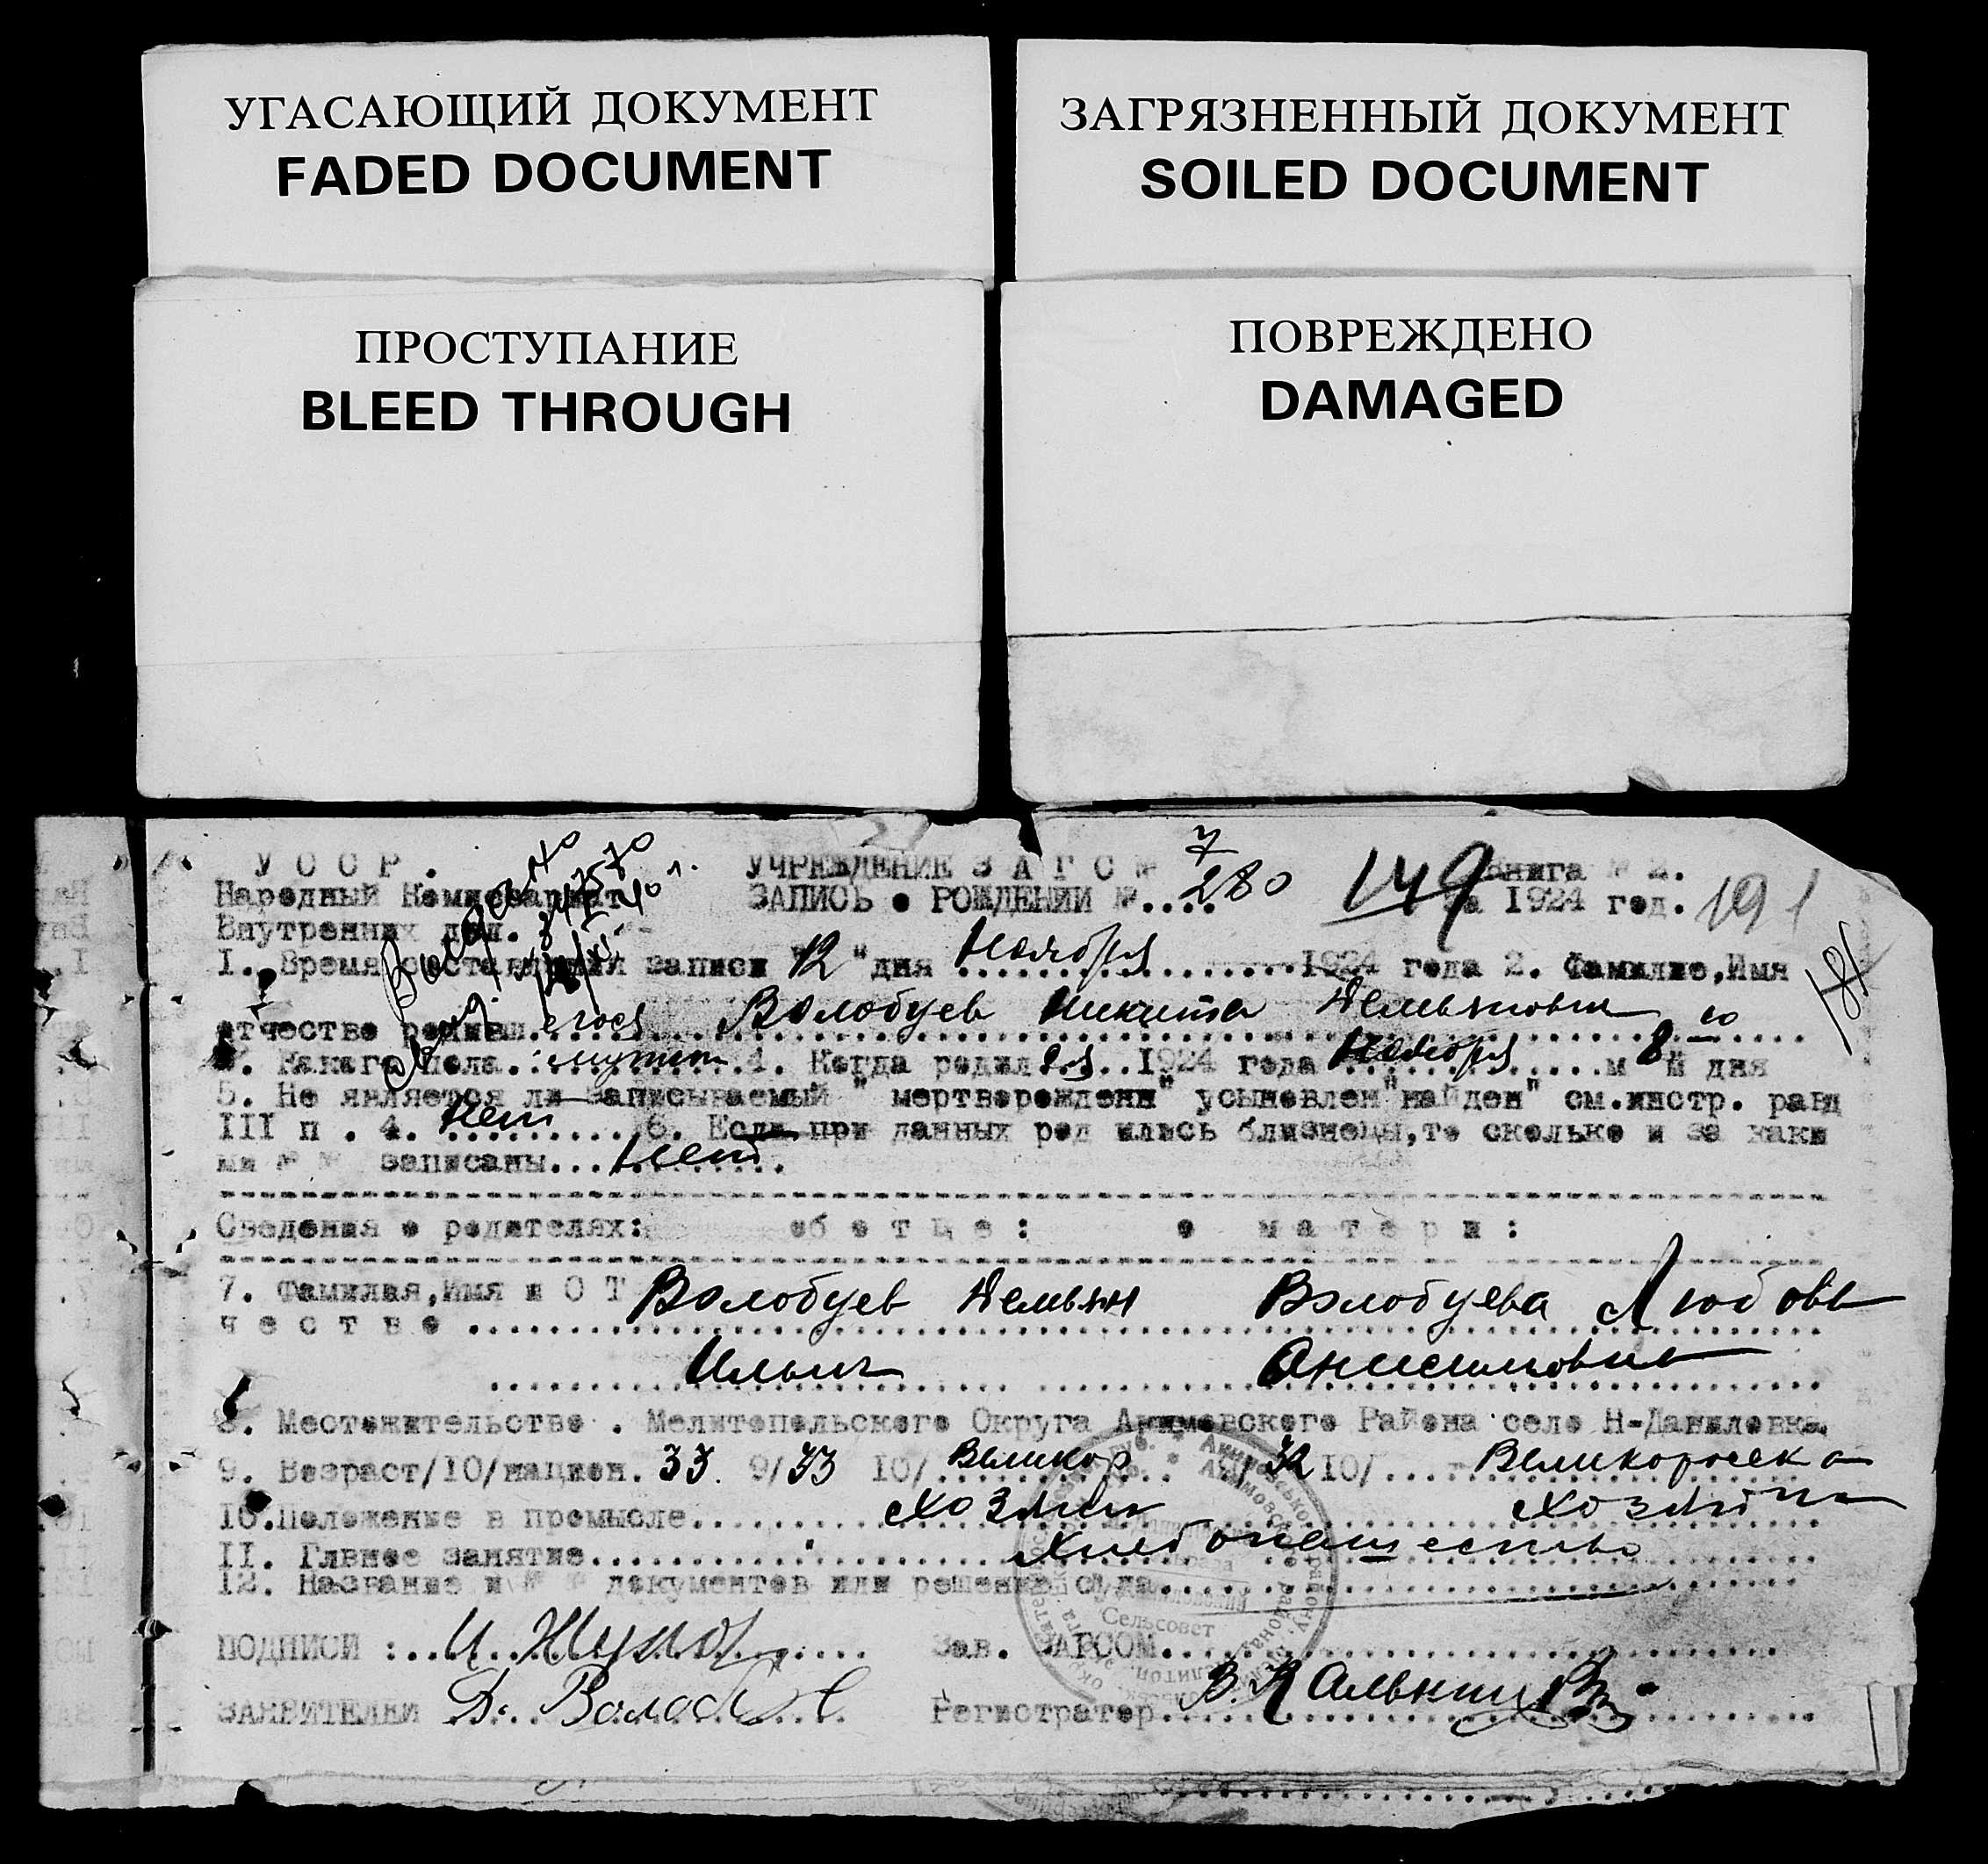 УГАСАЮЩИЙ ДОКУМЕНТ
FADED DOCUMENT
ЗАГРЯЗНЕННЫЙ ДОКУМЕНТ
SOILED DOCUMENT
ПРОСТУПАНИЕ
BLEED THROUGH
ПОВРЕЖДЕНО
DAMAGED
У С С Р . УЧРЕЖДЕНИЕ З А Г С № 7 Книга № 2.
Народный Комиссариат ЗАПИСЬ о РОЖДЕНИИ №.... 280 149 за 1924 год. 191
Внутренних дел.
181
I. Время составления записи 12 "дня Ноября 1924 года 2. Фамилие,Имя
отчество родивш.егося Волобуев Никита Демьянович
3. Какого пола. 4. Когда родился 1924 года Ноября м 8 го дня
5. Не является ли записываемый " мертворожденн" усыновлен"найден" см.инстр. разд
III п . 4. Нет 6. Если при данных род ились близнецы,то сколько и за каки
ми № № записаны... Нет
Сведения о родителях: об о т ц е : о м а т е р и :
7. Фамилия,Имя и О Т Волобуев Демьян Волобуева Любовь
ч е с т в о
Ильич Анисимовна
8. Местожительство . Мелитопольского Округа Акимовского Района село Н-Даниловка
9. Возраст/10/национ. 33. 9/33 10/ Великор 9/32 10/ Великоросска
10.Положение в промысле Хозяин Хозяйка
II. Главное занятие Хлебопашество
12. Название и № № документов или решение суда
Сельсовет
ПОДПИСИ : Зав. ЗАГСОМ
ЗАЯВИТЕЛЕЙ Д. Волоб Регистратор